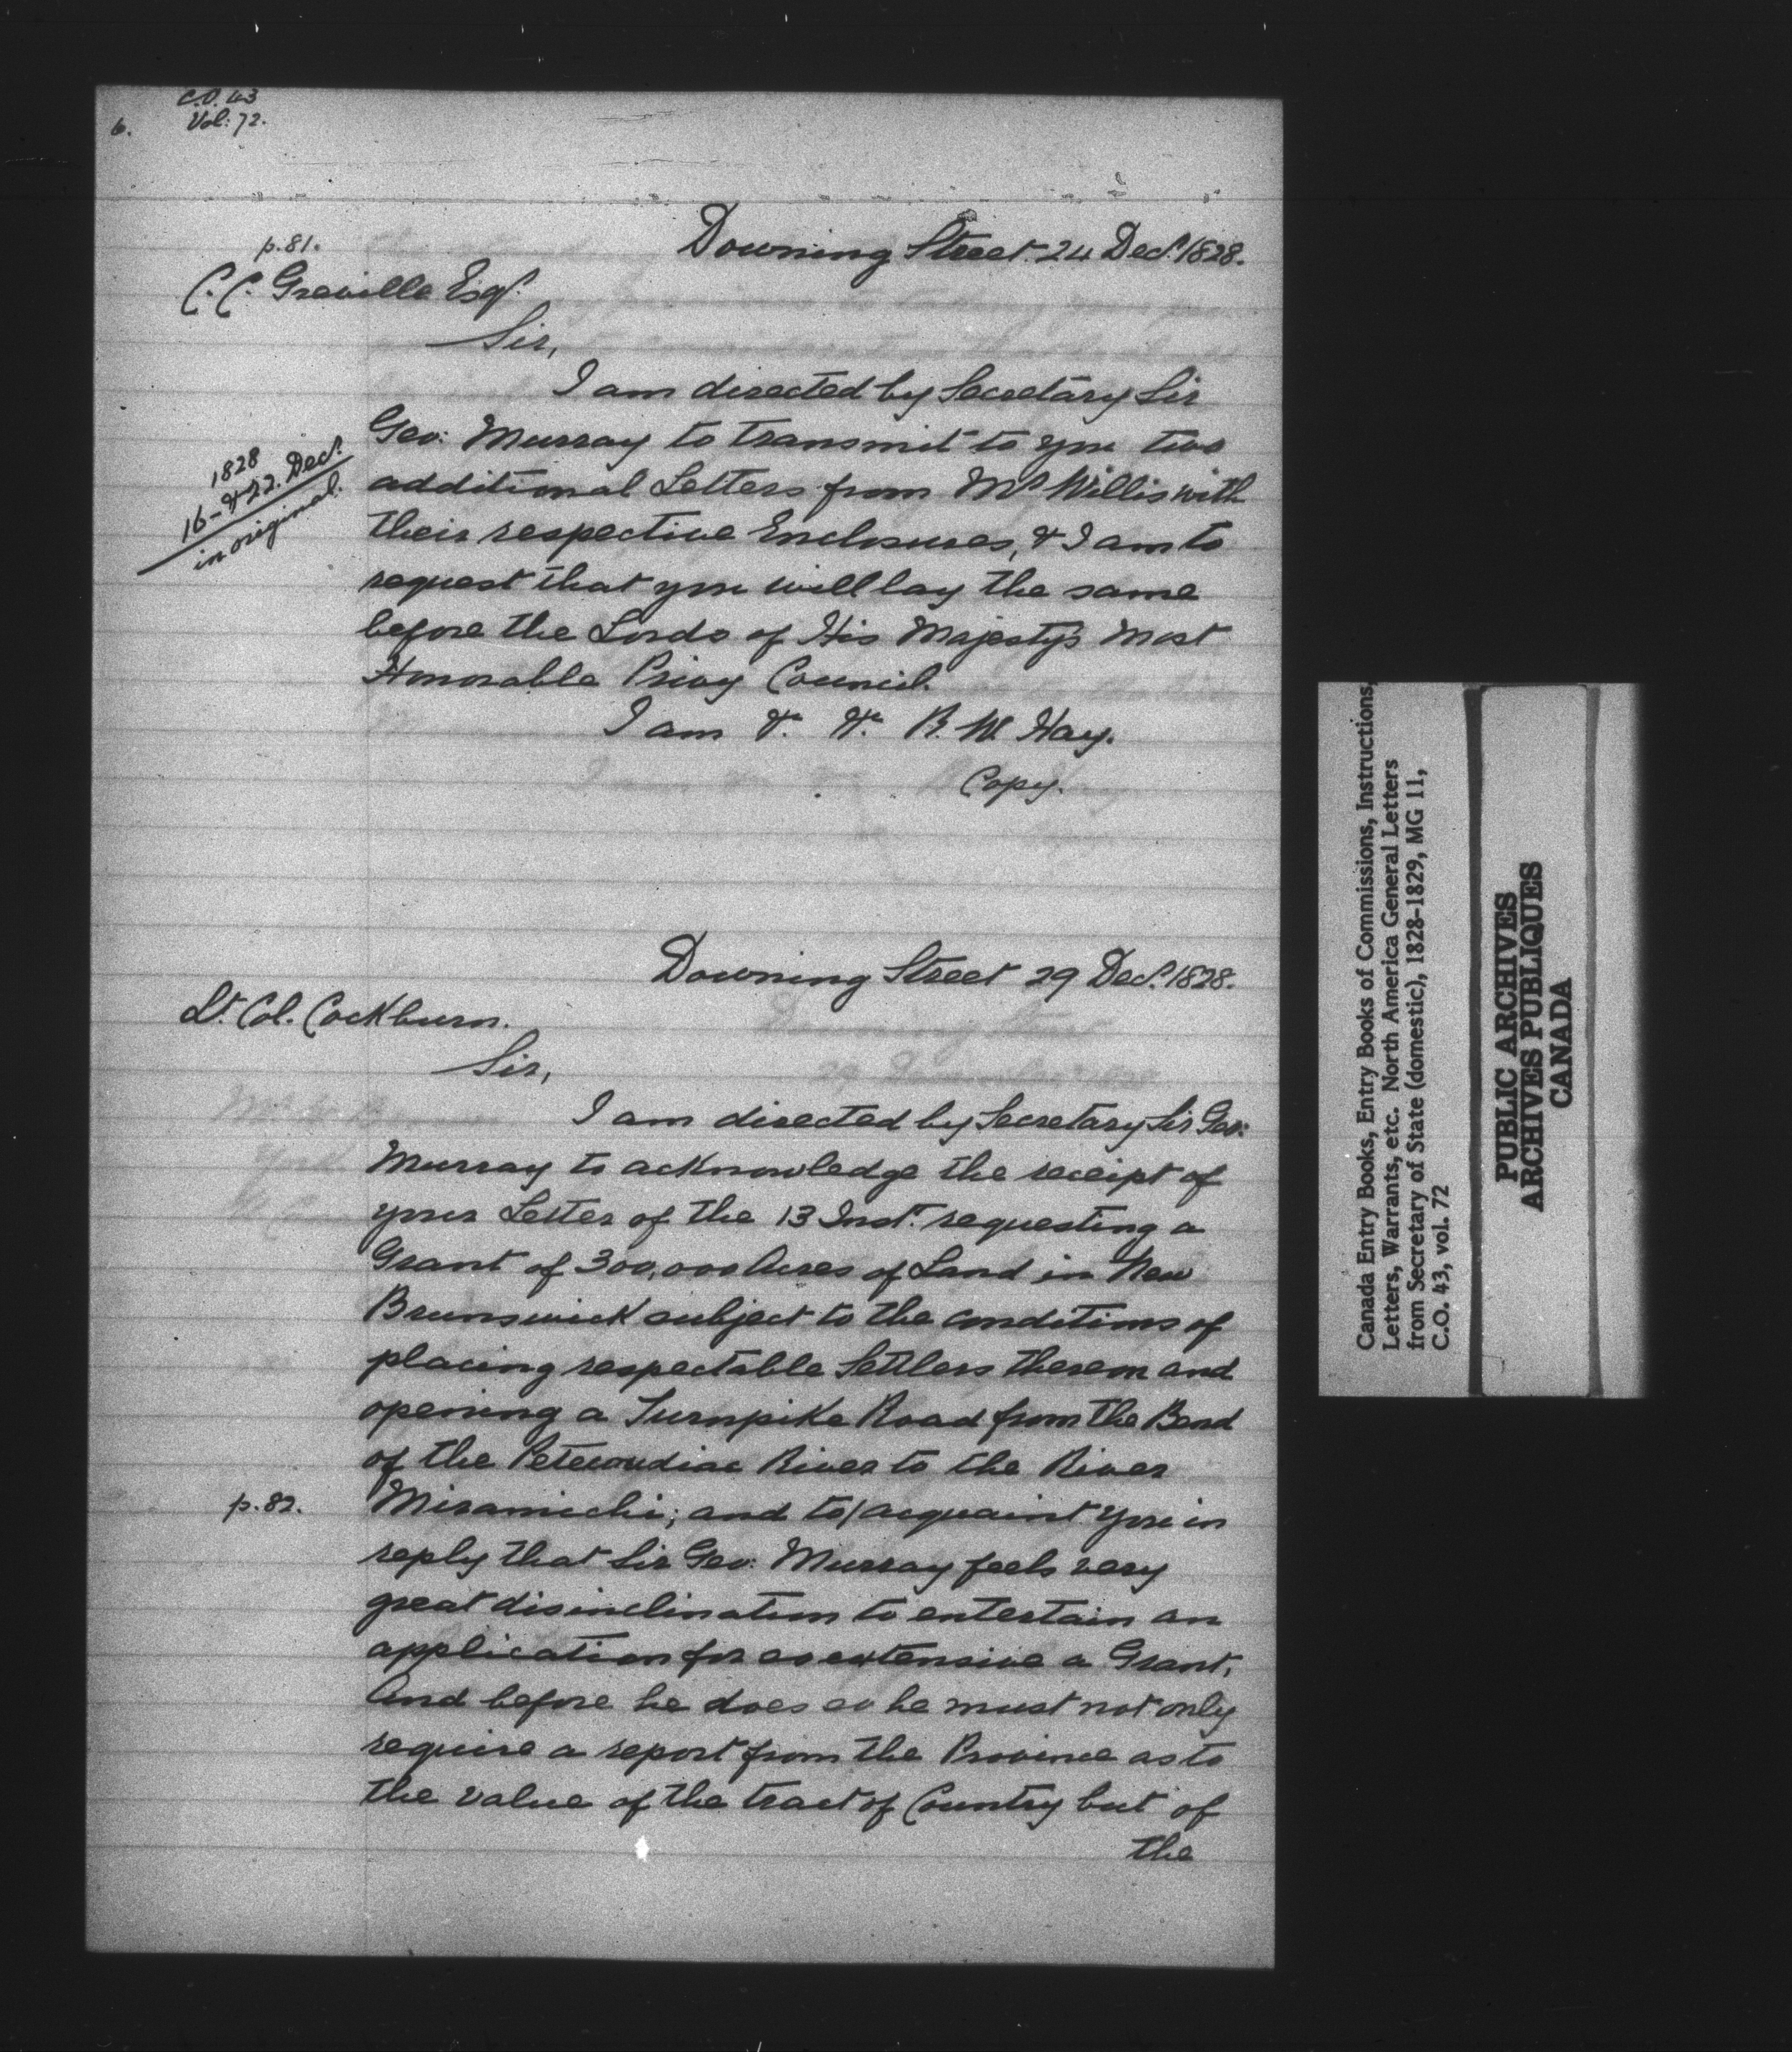 C.O. 43
6. Vol: 72.
Downing Street. 24 Decr. 1828.
p. 81.
C. C. Greville Esqr.
Sir,
I am directed by Secretary Sir
Geo: Murray to transmit to you two
additional Letters from Mr Willis with
their respective Enclosures, & I am to
request that you will lay the same
before the Lords of His Majesty's Most
Honorable Privy Council.
1828
16- & 22. Decr.
in original.
I am &c. &c. R. W. Hay.
Copy.
Downing Street 29 Decr. 1828.
Lt. Col. Cockburn.
Sir,
I am directed by Secretary Sir Geo:
Murray to acknowledge the receipt of
your Letter of the 13 Inst. requesting a
Grant of 300,000 Acres of Land in New
Brunswick subject to the conditions of
placing respectable Settlers thereon and
opening a Turnpike Road from the Bend
of the Petecoudiac River to the River
p. 82. Miramichi; and to/acquaint you in
reply that Sir Geo: Murray feels very
great disinclination to entertain an
application for so extensive a Grant,
And before he does so he must not only
require a report from the Province as to
the value of the tract of Country but of
the
Canada Entry Books, Entry Books of Commissions, Instructions,
Letters, Warrants, etc. North America General Letters
from Secretary of State (domestic), 1828-1829, MG 11,
C.O. 43, vol. 72
PUBLIC ARCHIVES
ARCHIVES PUBLIQUES
CANADA